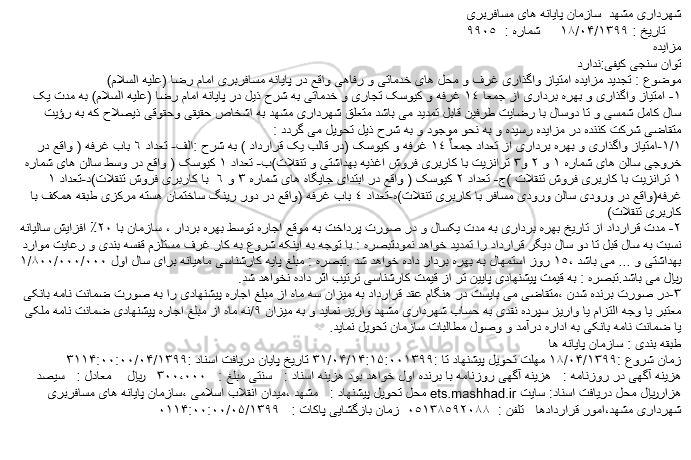 شهرداری مشهد سازمان پایانه های مسافربری
تاریخ : ۱۸/۰۴/۱۳۹۹ شماره : ۹۹۰۵
مزایده
توان سنجی کیفی:ندارد
موضوع : تجدید مزایده امتیاز واگذاری غرف و محل های خدماتی و رفاهی واقع در پایانه مسافربری امام رضا (علیه السلام)
۱- امتیاز واگذاری و بهره برداری از جمعا ١٤ غرفه و کیوسک تجاری و خدماتی به شرح ذیل در پایانه امام رضا (علیه السلام) به مدت یک
سال کامل شمسی و تا دوسال با رضایت طرفین قابل تمدید می باشد متعلق شهرداری مشهد به اشخاص حقیقی وحقوقی ذیصلاح که به رؤیت
متقاضی شرکت کننده در مزایده رسیده و به نحو موجود و به شرح ذیل تحویل می گردد :
۱/۱-امتیاز واگذاری و بهره برداری از تعداد جمعاً ١٤ غرفه و کیوسک (در قالب یک قرارداد ) به شرح :الف- تعداد ٦ باب غرفه ( واقع در
خروجی سالن های شماره ۱ و ۲و ۳ ترانزیت با کاربری فروش اغذیه بهداشتی و تنقلات)ب- تعداد ۱ کیوسک ( واقع در وسط سالن های شماره
۱ ترانزیت با کاربری فروش تنقلات )ج- تعداد ۲ کیوسک ( واقع در ابتدای جایگاه های شماره ۳ و ٦ با کاربری فروش تنقلات)د-تعداد ۱
غرفه(واقع در ورودی سالن ورودی مسافر با کاربری تنقلات)ه-تعداد ٤ باب غرفه (واقع در دور رینگ ساختمان هسته مرکزی طبقه همکف با
کاربری تنقلات)
۲- مدت قرارداد از تاریخ بهره برداری به مدت یکسال و در صورت پرداخت به موقع اجاره توسط بهره بردار ، سازمان با ۲۰٪ افزایش سالیانه
نسبت به سال قبل تا دو سال دیگر قرارداد را تمدید خواهد نمودتبصره : با توجه به اینکه شروع به کار غرف مستلزم قفسه بندی و رعایت موارد
بهداشتی و ... می باشد ،۱۵ روز استمهال به بهره بردار داده خواهد شد .تبصره : مبلغ پایه کارشناسی ماهیانه برای سال اول ۱/۸۰۰/۰۰۰/۰۰۰
ریال می باشد.تبصره : به قیمت پیشنهادی پایین تر از قیمت کارشناسی ترتیب اثر داده نخواهد شد.
۳-در صورت برنده شدن ،متقاضی می بایست در هنگام عقد قرارداد به میزان سه ماه از مبلغ اجاره پیشنهادی را به صورت ضمانت نامه بانکی
معتبر یا وجه التزام یا واریز سپرده نقدی به حساب شهرداری مشهد واریز نماید و به میزان ۹/نه ماه از مبلغ اجاره پیشنهادی ضمانت نامه ملکی
یا ضمانت نامه بانکی به اداره درآمد و وصول مطالبات سازمان تحویل نماید.
طبقه بندی : سازمان پایانه ها
زمان شروع :۱۸/۰۴/۱۳۹۹ مهلت تحویل پیشنهاد تا :۳۱/۰۴/۱۴:۱۵:۰۰۱۳۹۹ تاریخ پایان دریافت اسناد :۳۱۱۴:۰۰:۰۰/۰۴/۱۳۹۹
هزینه آگهی در روزنامه : هزینه آگهی روزنامه با برنده اول خواهد بود هزینه اسناد : سنتی مبلغ : ۳۰۰,۰۰۰ ریال معادل : سیصد
هزارریال محل دریافت اسناد: سایت ets.mashhad.ir محل تحویل پیشنهاد : مشهد ،میدان انقلاب اسلامی ،سازمان پایانه های مسافربری
شهرداری مشهد،امور قراردادها تلفن : ۰۵۱۳۸۵۹۲۰۸۸ زمان بازگشایی پاکات : ۰۱۱۴:۰۰:۰۰/۰۵/۱۳۹۹